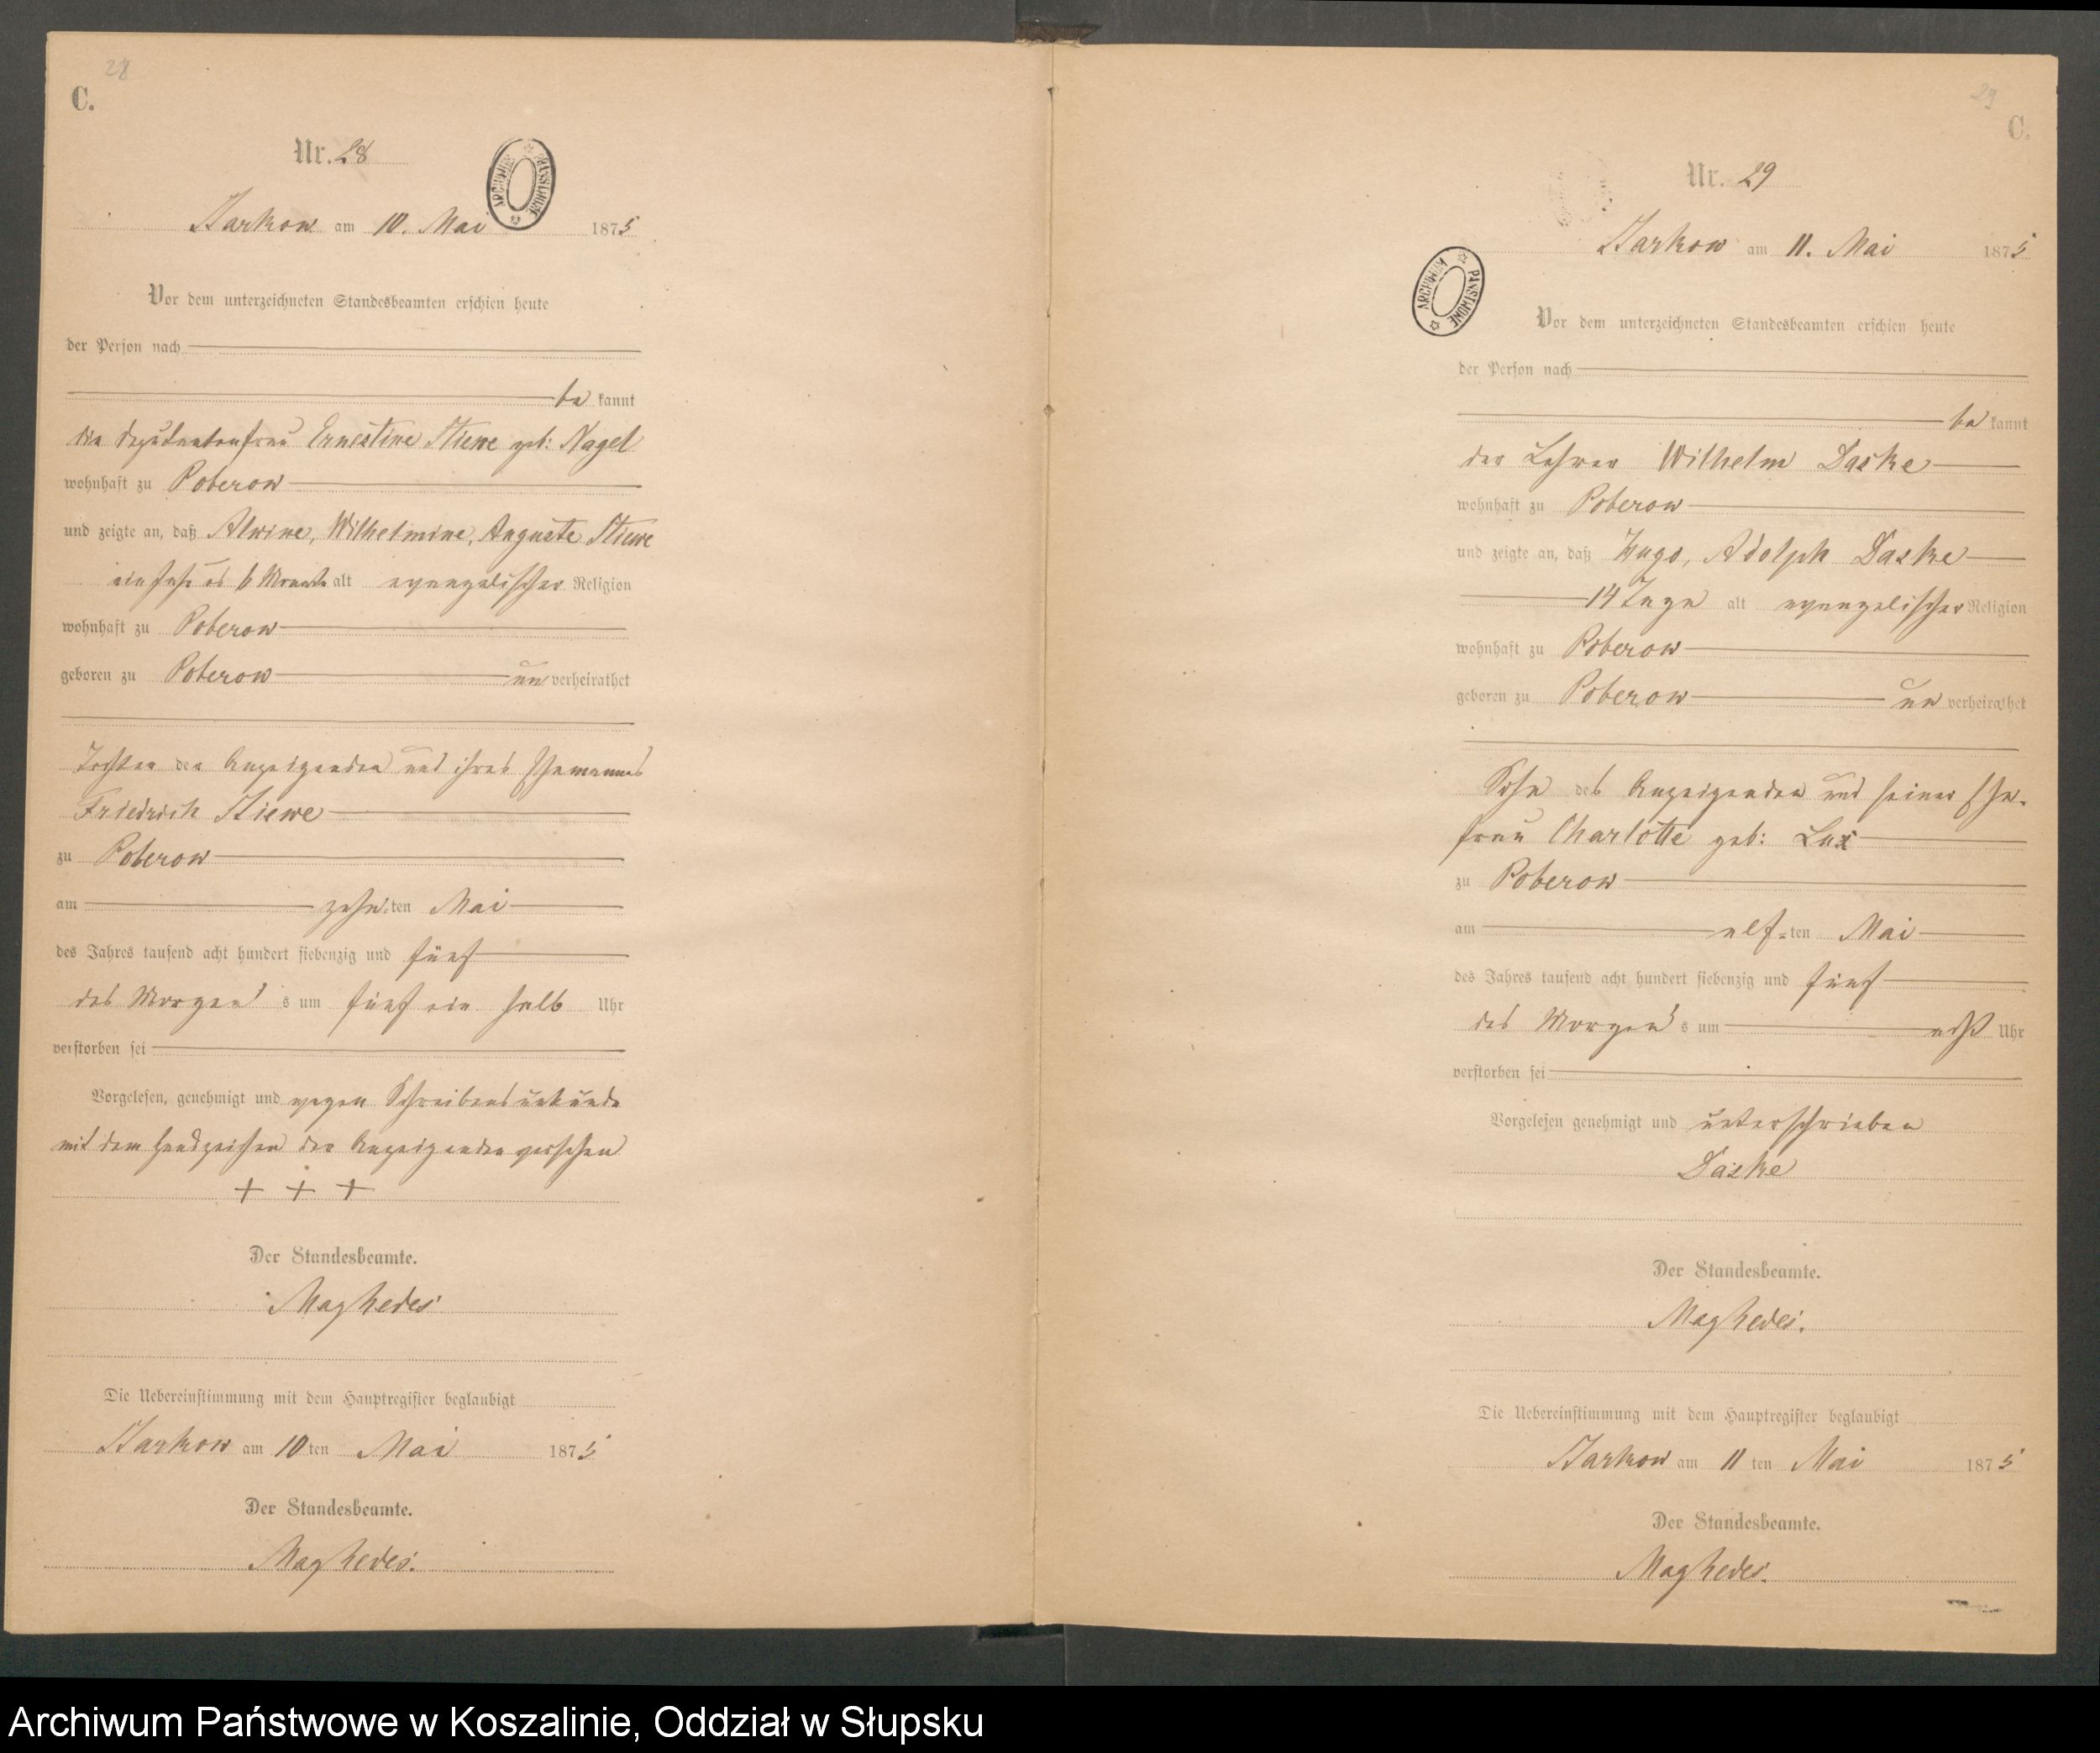 28
C.
Nr. 28
ARCHIWUM PAŃSTWOWE
Zarkow am 10. Mai 1875
Vor dem unterzeichneten Standesbeamten erschien heute
der Person nach
be kannt
die Deputantenfrau Ernestine Stiewe geb: Nagel
wohnhaft zu Poberow
und zeigte an, daß Alwine, Wilhelmine, Auguste Stiewe
ein Jahr 6 Monate alt evangelischer Religion
wohnhaft zu Poberow
geboren zu Poberow un verheirathet
Tochter der Anzeigenden und ihres Ehemannes
Friedrich Stiewe
zu Poberow
am zehn-ten Mai
des Jahres tausend acht hundert siebenzig und fünf
des Morgen s um fünf ein halb Uhr
verstorben sei
Vorgelesen, genehmigt und wegen Schreibensunkunde
mit dem Handzeichen der Anzeigenden versehen
+ + +
Der Standesbeamte.
Die Uebereinstimmung mit dem Hauptregister beglaubigt
Zarkow am 10 ten Mai 1875
Der Standesbeamte.
29
C.
Nr. 29
ARCHIWUM PAŃSTWOWE
Zarkow am 11. Mai 1875
Vor dem unterzeichneten Standesbeamten erschien heute
der Person nach
be kannt
der Lehrer Wilhelm Daske
wohnhaft zu Poberow
und zeigte an, daß Hugo, Adolph Daske
14 Tage alt evangelischer Religion
wohnhaft zu Poberow
geboren zu Poberow un verheirathet
Sohn des Anzeigenden und seiner Ehe-
frau Charlotte geb: Lux
zu Poberow
am elf-ten Mai
des Jahres tausend acht hundert siebenzig und fünf
des Morgen s um acht Uhr
verstorben sei
Vorgelesen genehmigt und unterschrieben
Daske
Der Standesbeamte.
Die Uebereinstimmung mit dem Hauptregister beglaubigt
Zarkow am 11 ten Mai 1875
Der Standesbeamte.
Archiwum Państwowe w Koszalinie, Oddział w Słupsku